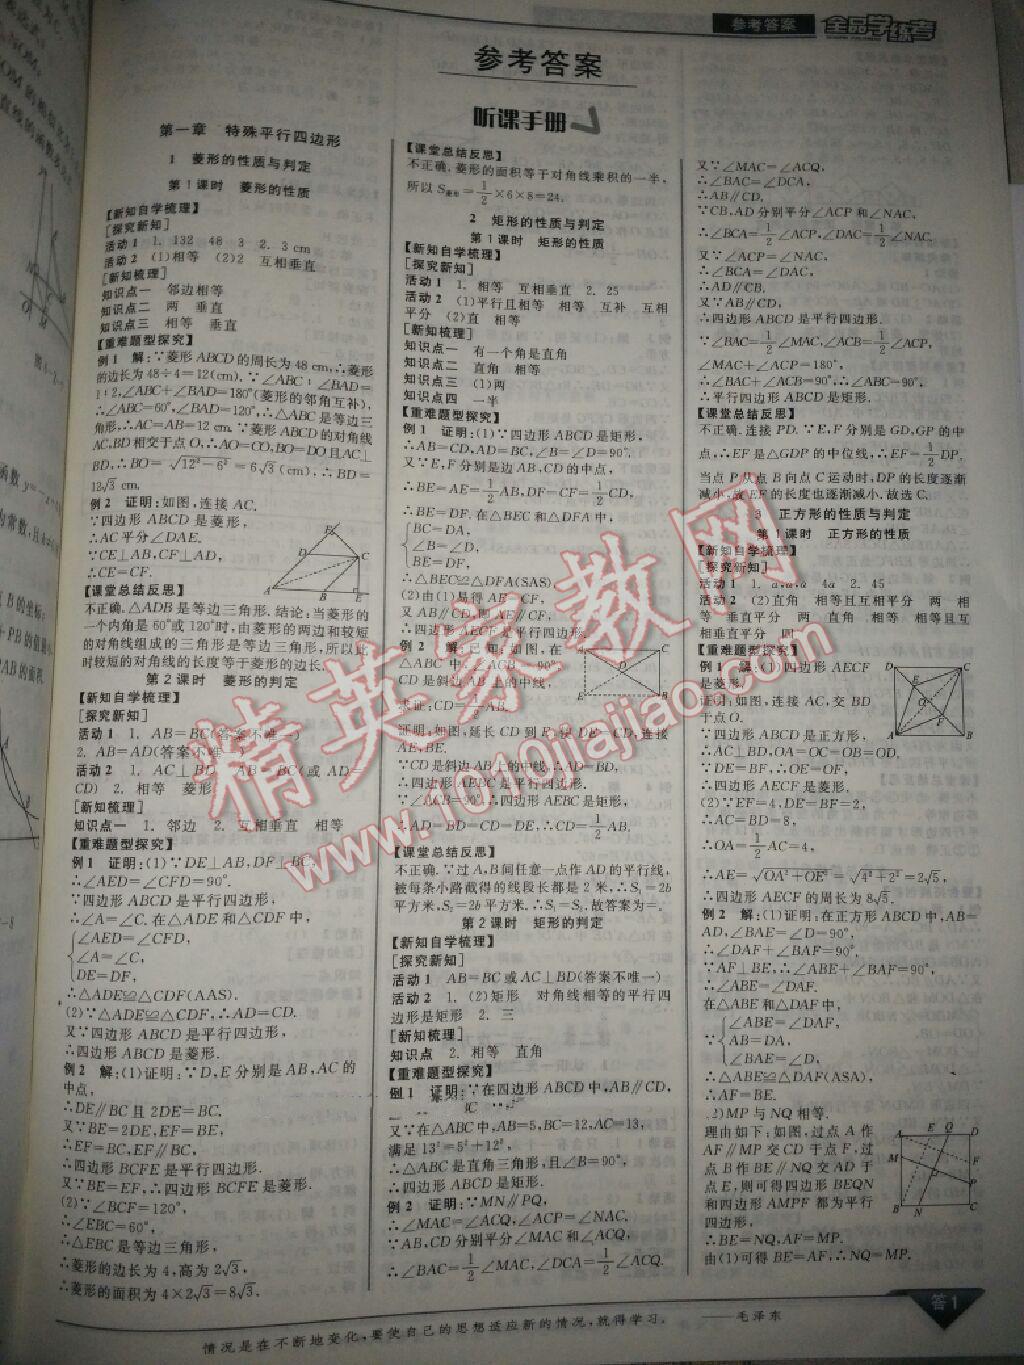 参考答案
全品学练考
参考答案
听课手册
第一章 特殊平行四边形
1 菱形的性质与判定
第1课时 菱形的性质
【新知自学梳理】
[探究新知]
活动1 1. 132 48 3 2. 3 cm
活动2 (1)相等 (2)2 互相垂直
[新知梳理]
知识点一 邻边相等
知识点二 两 垂直
知识点三 相等 垂直
【重难题型探究】
例1 解:∵菱形ABCD的周长为48 cm,∴菱形
的边长为48÷4=12(cm).∵∠ABC∶∠BAD=
1∶2,∠ABC+∠BAD=180°(菱形的邻角互补),
∴∠ABC=60°,∠BAD=120°,∴△ABC是等边三
角形,∴AC=AB=12 cm.∵菱形ABCD的对角线
AC,BD相交于点O,∴AO=CO,BO=DO且AC⊥
BD,∴BO=√(12²-6²)=6√3(cm),∴BD=
12√3 cm.
例2 证明:如图,连接AC.
∵四边形ABCD是菱形,
∴AC平分∠DAE.
∵CE⊥AB,CF⊥AD,
∴CE=CF.
【课堂总结反思】
不正确.△ADB是等边三角形.结论:当菱形的
一个内角是60°或120°时,由菱形的两边和较短
的对角线组成的三角形是等边三角形,所以此
时较短的对角线的长度等于菱形的边长.
第2课时 菱形的判定
【新知自学梳理】
[探究新知]
活动1 1. AB=BC(答案不唯一)
2. AB=AD(答案不唯一)
活动2 1. AC⊥BD AB=BC(或AD=
CD) 2. 相等 菱形
[新知梳理]
知识点一 1. 邻边 2. 互相垂直 相等
【重难题型探究】
例1 证明:(1)∵DE⊥AB,DF⊥BC,
∴∠AED=∠CFD=90°.
∵四边形ABCD是平行四边形,
∴∠A=∠C.在△ADE和△CDF中,
∠AED=∠CFD,
∠A=∠C,
DE=DF,
∴△ADE≌△CDF(AAS).
(2)∵△ADE≌△CDF,∴AD=CD.
又∵四边形ABCD是平行四边形,
∴四边形ABCD是菱形.
例2 解:(1)证明:∵D,E分别是AB,AC的
中点,
∴DE∥BC且2DE=BC.
又∵BE=2DE,EF=BE,
∴EF=BC,EF∥BC,
∴四边形BCFE是平行四边形.
又∵BE=EF,∴四边形BCFE是菱形.
(2)∵∠BCF=120°,
∴∠EBC=60°,
∴△EBC是等边三角形,
∴菱形的边长为4,高为2√3,
∴菱形的面积为4×2√3=8√3.
【课堂总结反思】
不正确,菱形的面积等于对角线乘积的一半,
所以S菱形=1/2×6×8=24.
2 矩形的性质与判定
第1课时 矩形的性质
【新知自学梳理】
[探究新知]
活动1 1. 相等 互相垂直 2. 25
活动2 (1)平行且相等 相等 互补 互相
平分 (2)直 相等
[新知梳理]
知识点一 有一个角是直角
知识点二 直角 相等
知识点三 (1)两
知识点四 一半
【重难题型探究】
例1 证明:(1)∵四边形ABCD是矩形,
∴AB=CD,AD=BC,∠B=∠D=90°.
又∵E,F分别是边AB,CD的中点,
∴BE=AE=1/2AB,DF=CF=1/2CD,
∴BE=DF.在△BEC和△DFA中,
BC=DA,
∠B=∠D,
BE=DF,
∴△BEC≌△DFA(SAS).
(2)由(1)易得AE=CF,
又AB∥CD,即AE∥CF,
∴四边形AECF是平行四边形.
例2 解:已知:如图,在
△ABC中,∠ACB=90°,
CD是斜边AB上的中线,
求证:CD=1/2AB.
证明:如图,延长CD到E,使DE=CD,连接
AE,BE.
∵CD是斜边AB上的中线,∴AD=BD,
∴四边形AEBC是平行四边形.
∵∠ACB=90°,∴四边形AEBC是矩形,
∴AD=BD=CD=DE,∴CD=1/2AB.
【课堂总结反思】
不正确.∵过A,B间任意一点作AD的平行线,
被每条小路截得的线段长都是2米,∴S₁=2b
平方米,S₂=2b平方米,∴S₁=S₂.故答案为=.
第2课时 矩形的判定
【新知自学梳理】
[探究新知]
活动1 AB=BC或AC⊥BD(答案不唯一)
活动2 1. (2)矩形 对角线相等的平行四
边形是矩形 2. 三
[新知梳理]
知识点 2. 相等 直角
【重难题型探究】
例1 证明:∵在四边形ABCD中,AB∥CD,
又∵在△ABC中,AB=5,BC=12,AC=13,
满足13²=5²+12²,
∴△ABC是直角三角形,且∠B=90°,
∴四边形ABCD是矩形.
例2 证明:∵MN∥PQ,
∴∠MAC=∠ACQ,∠ACP=∠NAC.
∵AB,CD分别平分∠MAC和∠ACQ,
∴∠BAC=1/2∠MAC,∠DCA=1/2∠ACQ.
又∵∠MAC=∠ACQ,
∴∠BAC=∠DCA,
∴AB∥CD.
∵CB,AD分别平分∠ACP和∠NAC,
∴∠BCA=1/2∠ACP,∠DAC=1/2∠NAC.
又∵∠ACP=∠NAC,
∴∠BCA=∠DAC,
∴AD∥CB.
又∵AB∥CD,
∴四边形ABCD是平行四边形.
∵∠BAC=1/2∠MAC,∠ACB=1/2∠ACP,
∠MAC+∠ACP=180°,
∴∠BAC+∠ACB=90°,∴∠ABC=90°,
∴平行四边形ABCD是矩形.
【课堂总结反思】
不正确.连接PD.∵E,F分别是GD,GP的中
点,∴EF是△GDP的中位线,∴EF=1/2DP.
当点P从点B向点C运动时,DP的长度逐渐
减小,故EF的长度也逐渐减小.故选C.
3 正方形的性质与判定
第1课时 正方形的性质
【新知自学梳理】
[探究新知]
活动2 (2)直角 相等且互相平分 两 相
等 垂直平分 两 直角 相等 相等且互
相垂直平分 四
【重难题型探究】
例1 解:(1)四边形AECF
是菱形.
证明:如图,连接AC,交BD
于点O.
∵四边形ABCD是正方形,
∴AC⊥BD,OA=OC=OB=OD.
∵DE=BF,∴OE=OF,
∴四边形AECF是菱形.
(2)∵EF=4,DE=BF=2,
∴AC=BD=8,
∴OA=1/2AC=4,
∴AE=√(OA²+OE²)=√(4²+2²)=2√5,
∴四边形AECF的周长为8√5.
例2 解:(1)证明:在正方形ABCD中,AB=
AD,∠BAE=∠D=90°,
∴∠DAF+∠BAF=90°,
∵AF⊥BE,∴∠ABE+∠BAF=90°,
∴∠ABE=∠DAF.
在△ABE和△DAF中,
∠ABE=∠DAF,
∵AB=DA,
∠BAE=∠D,
∴△ABE≌△DAF(ASA),
∴AF=BE.
(2)MP与NQ相等.
理由如下:如图,过点A作
AF∥MP交CD于点F,过
点B作BE∥NQ交AD于
点E,则可得四边形BEQN
和四边形AMPF都为平行
四边形,
∴BE=NQ,AF=MP.
由(1)可得BE=AF,∴NQ=MP.
精英家教网
www.1010jiajiao.com
情况是在不断地变化,要使自己的思想适应新的情况,就得学习。 ——毛泽东
答1